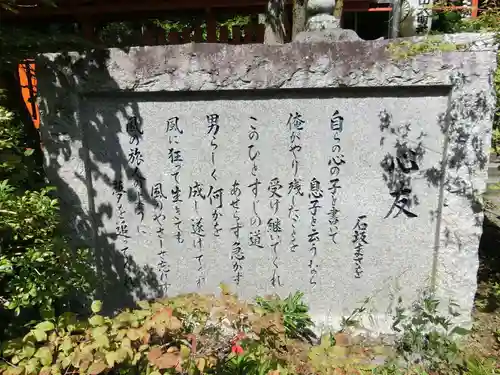 心友
石坂まさを
自らの心の子を書いて
息子と云うなら
俺がやり残したことを
受け継いでくれ
このひとすじの道
あせらず急がず
男らしく何かを
成し遂げてくれ
風に狂って生きても
風のやさしさ忘れず
風の旅人のように
夢を追って